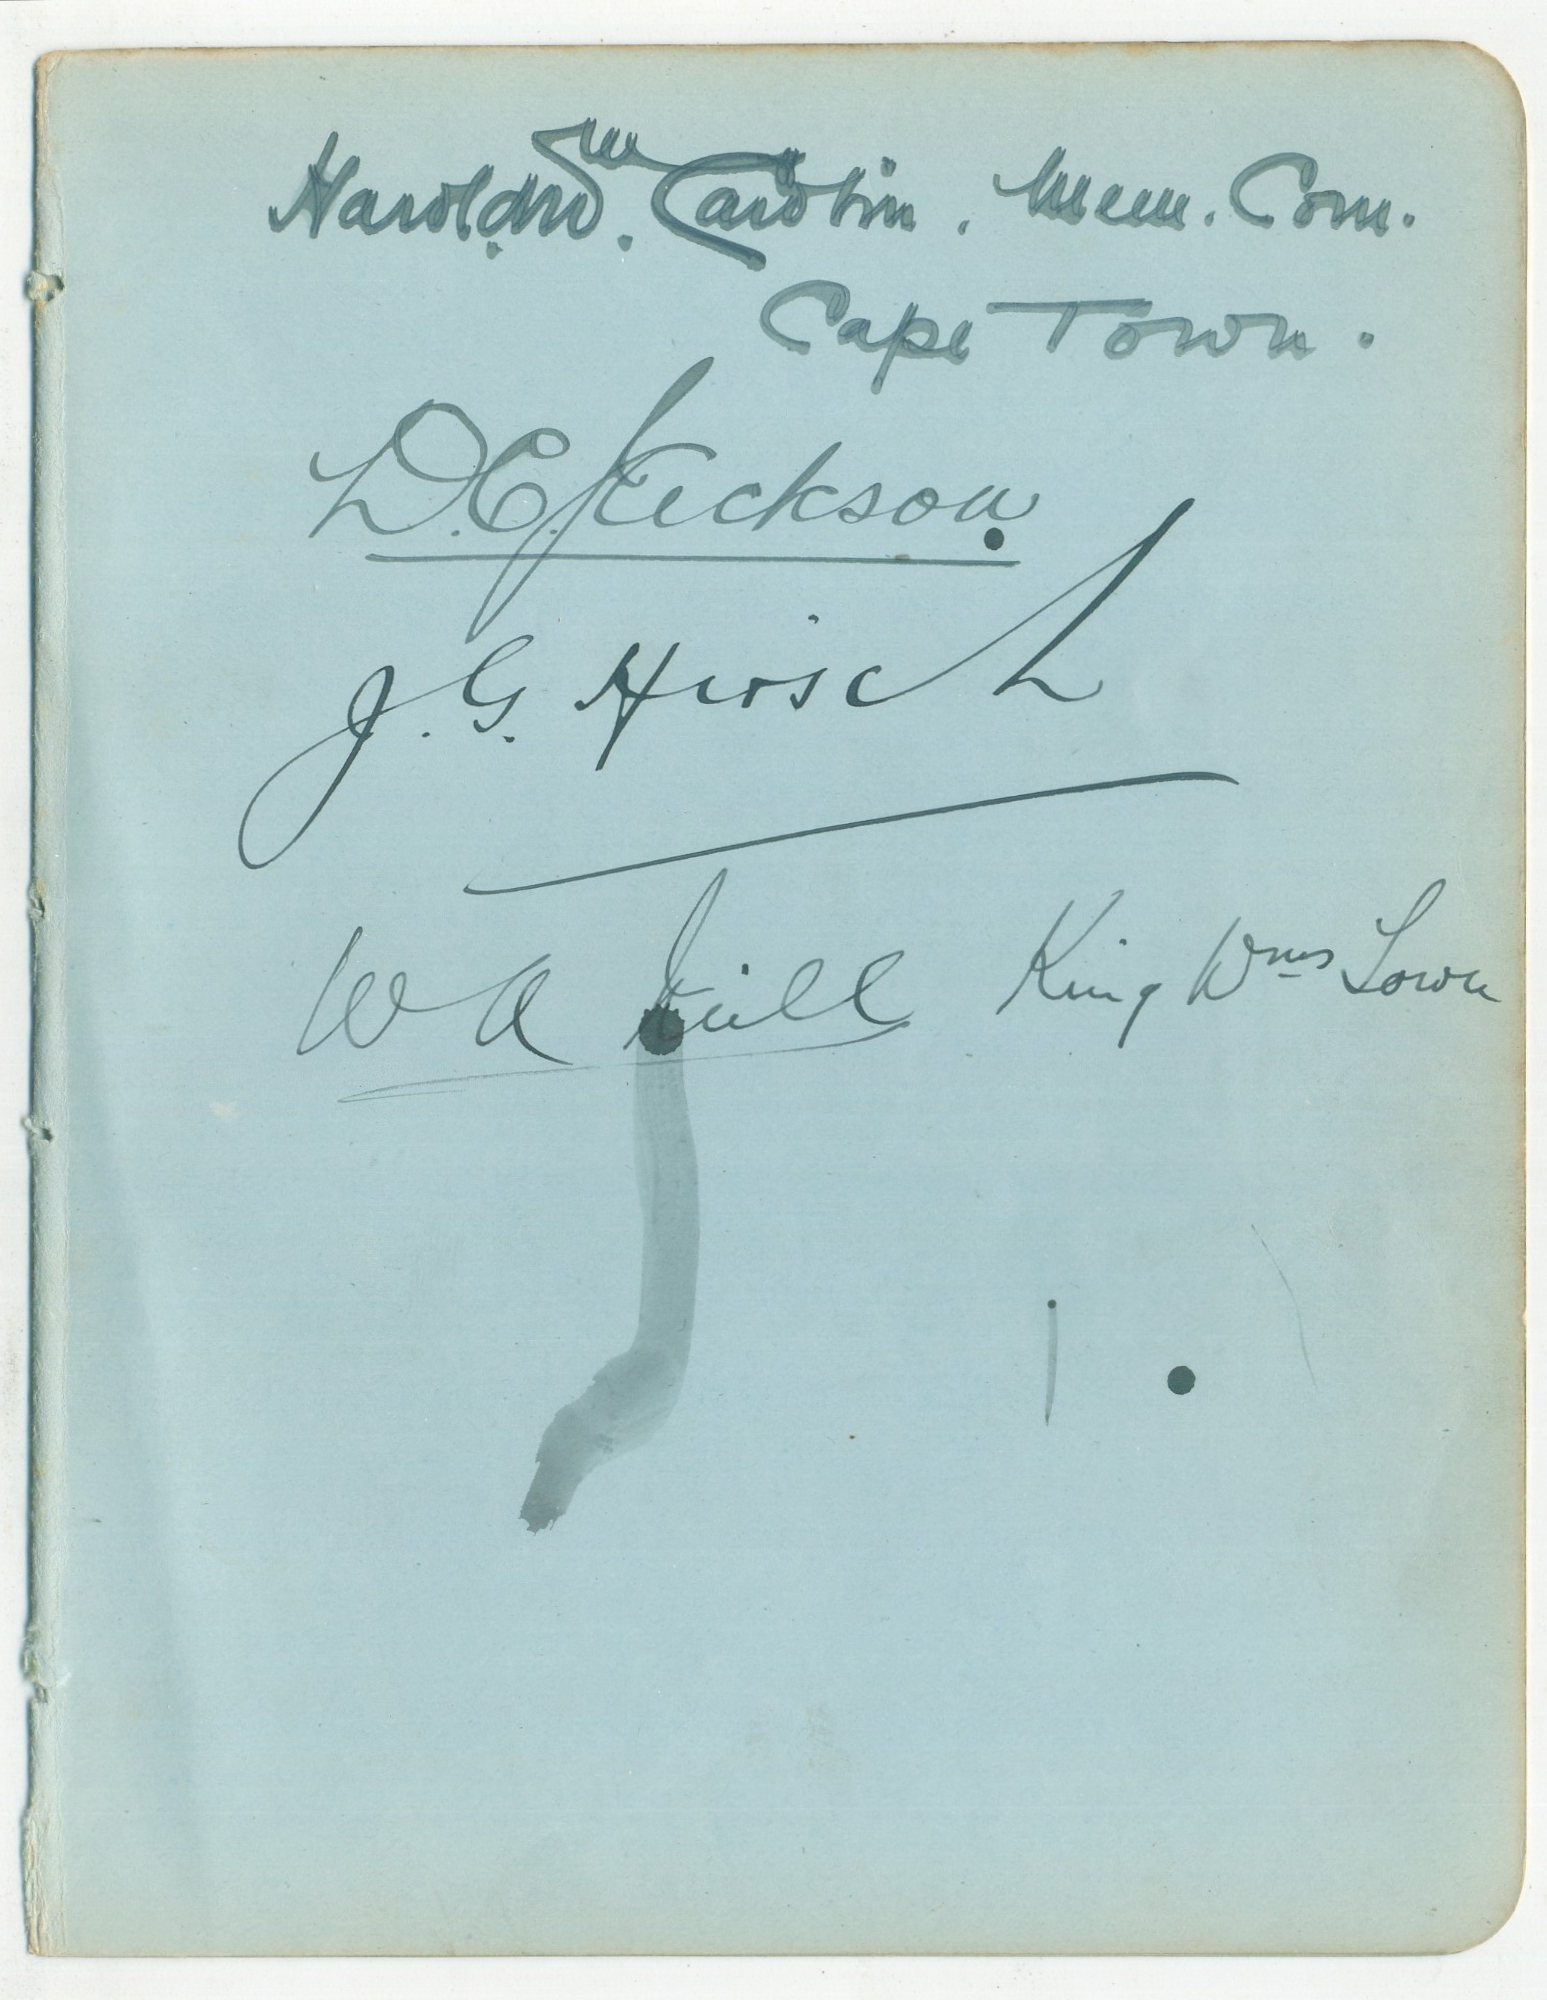 Harold Wm. Carolin. Mem. Com.
Cape Town.
D. E. Jackson.
J. G. Hirsch
W A King Wms Town